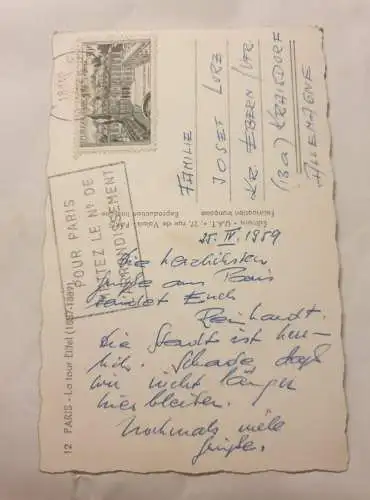 12 PARIS - La tour Eiffel (1887-1889)
POUR PARIS
NTEZ LE Nº DE
RRONDISSEMENT
Editions "U.A.T.", 27, rue de Valois - Paris
Fabrication française Reproduction interdite
FAMILIE
JOSEF LURZ
KR. EBERN/UFR.
(13a) KRAISDORF
ALLEMAGNE
25. IV. 1959
Die herzlichsten
Grüße aus Paris
sendet Euch
Reinhardt.
Die Stadt ist herr-
lich. Schade daß
wir nicht länger
hier bleiben.
Nochmals viele
Grüße.